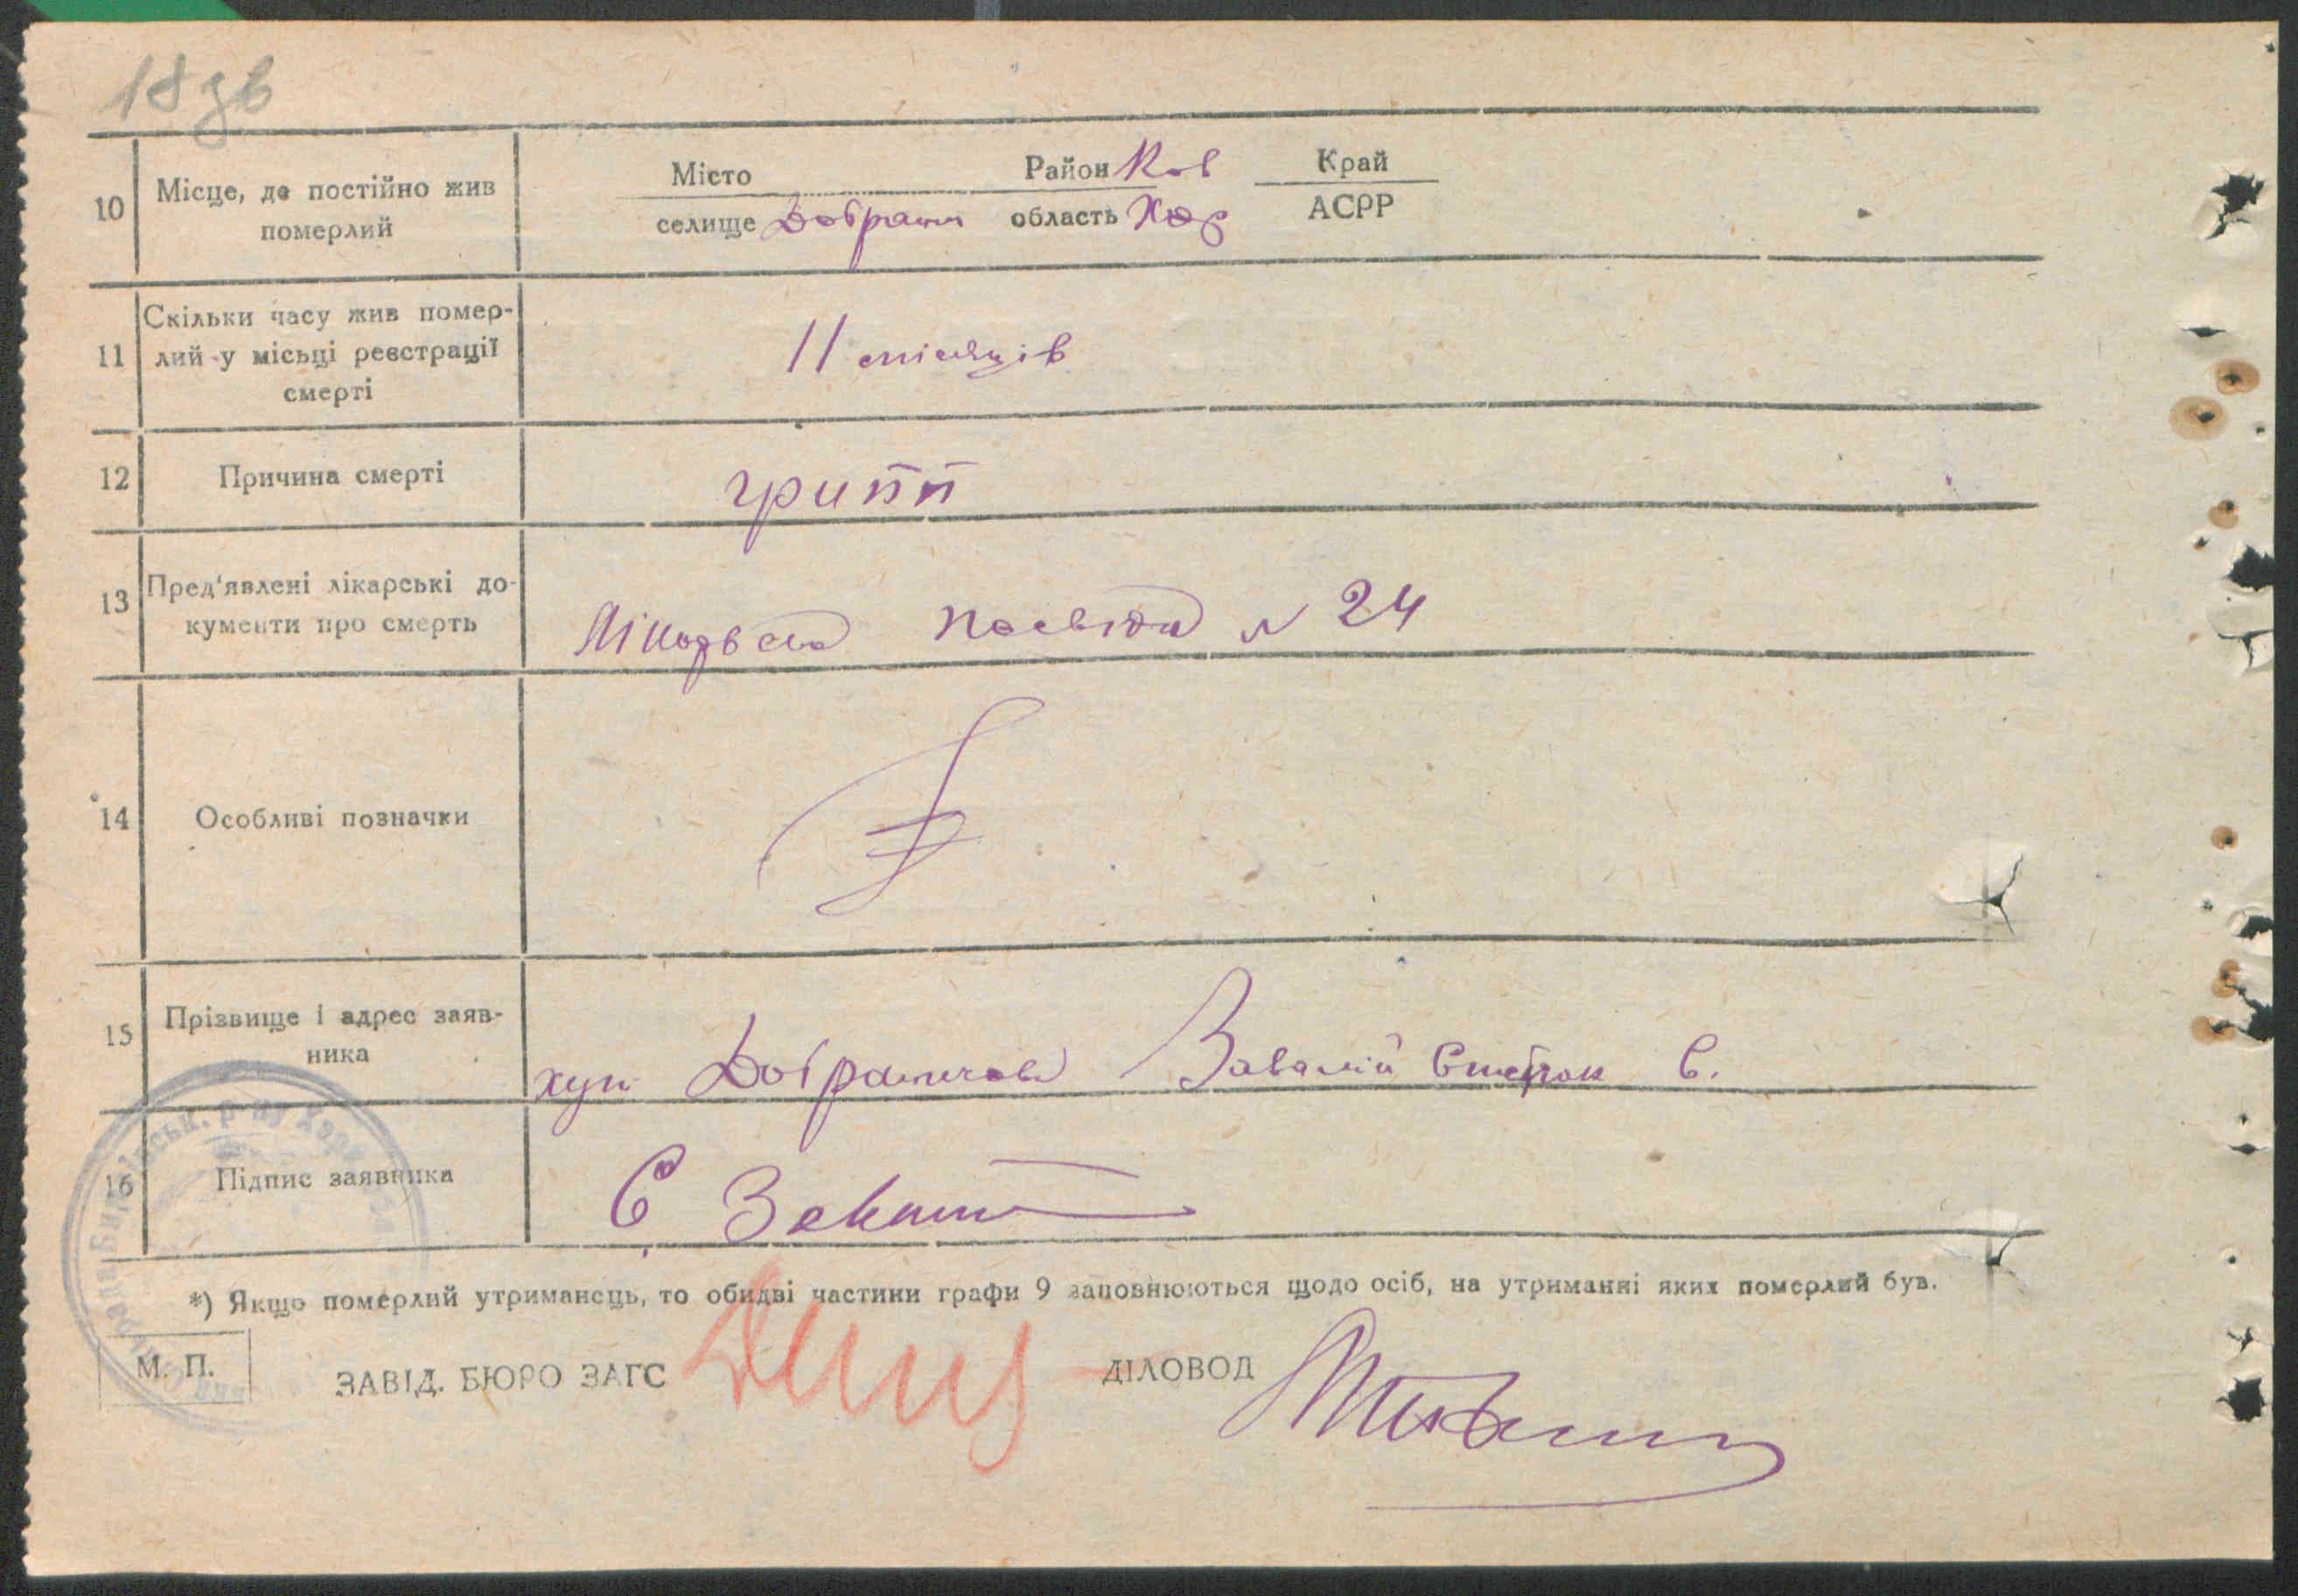 18 зв
10 Місце, де постійно жив померлий
Місто Район Ков Край
селище область Хар АСРР
11 Скільки часу жив помер-
лий у місьці реєстрації
смерті
11 місяців
12 Причина смерті
грипп
13 Пред'явлені лікарські до-
кументи про смерть
Лікарсько посвідка N 24
14 Особливі позначки
15 Прізвище і адрес заяв-
ника
хут Є.
16 Підпис заявника
Є
*) Якщо померлий утриманець, то обидві частини графи 9 заповнюються щодо осіб, на утриманні яких померлий був.
М. П.
ЗАВІД. БЮРО ЗАГС ДІЛОВОД